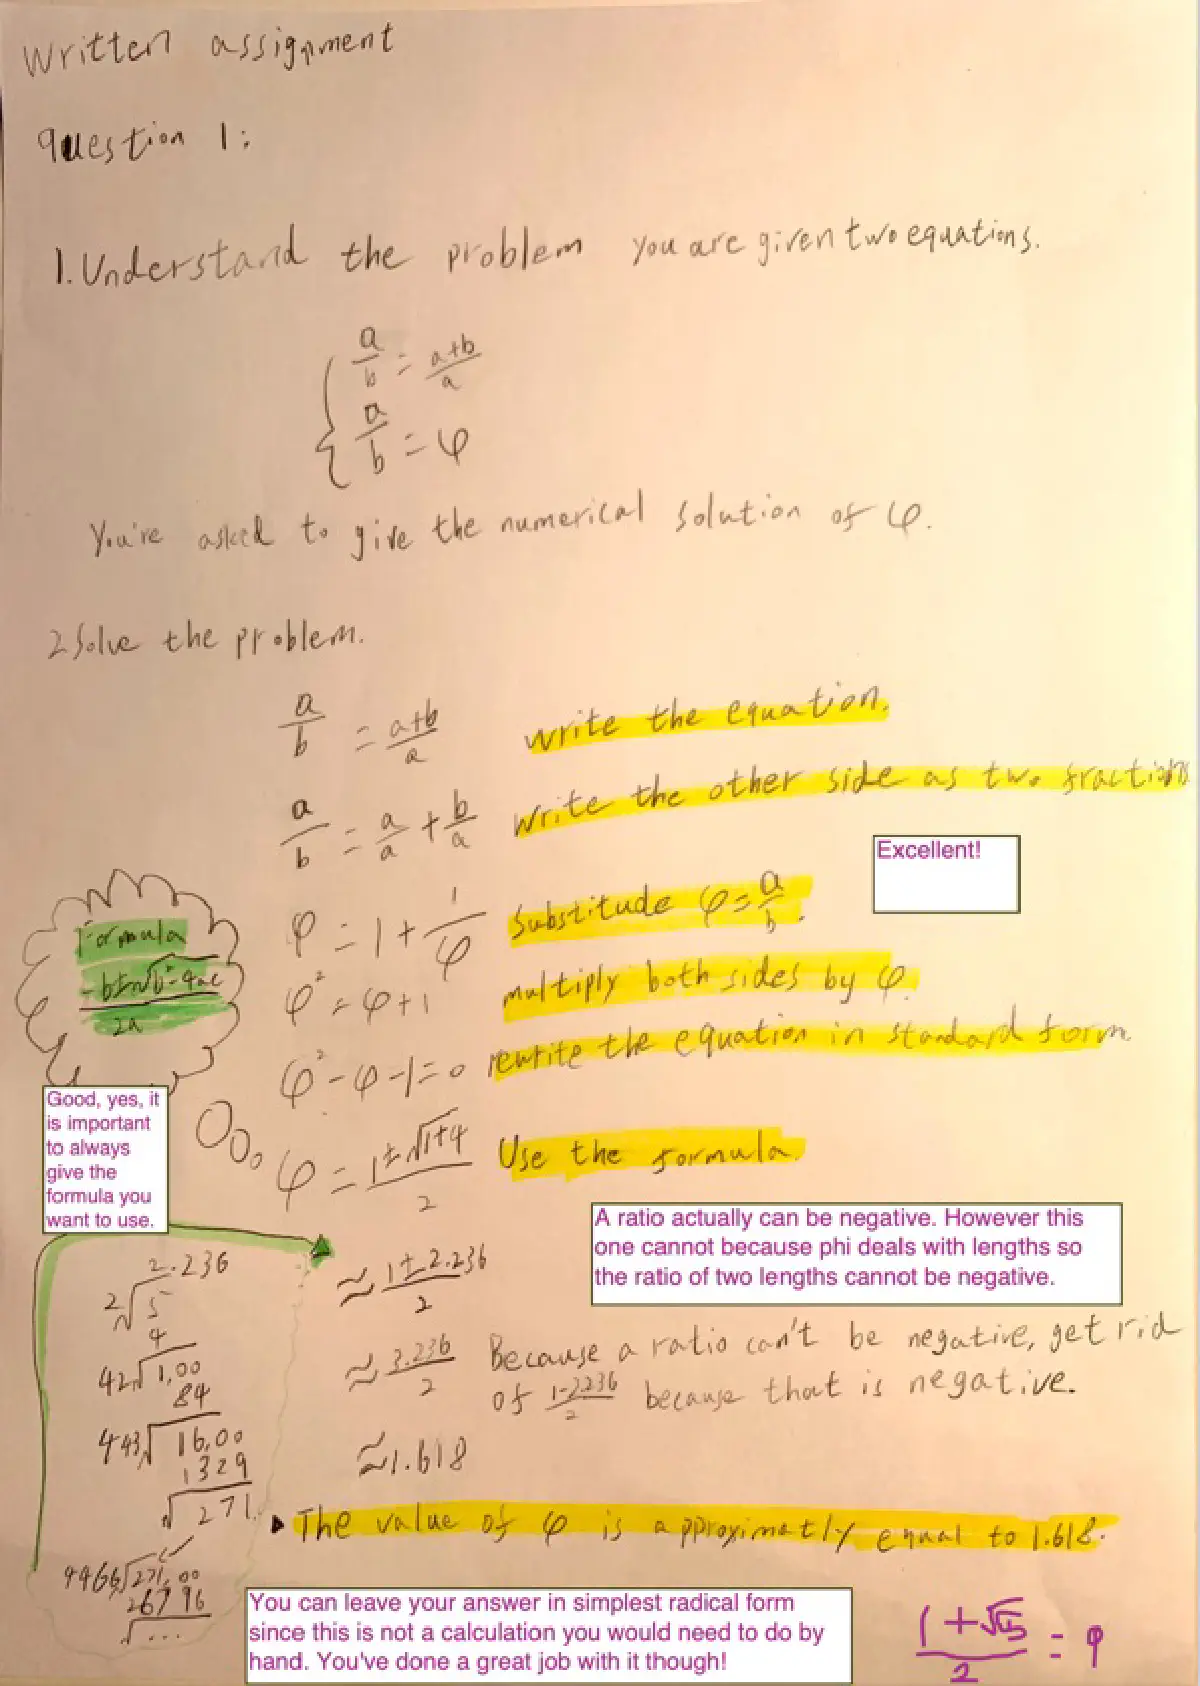 Written assignment
question 1:
1. Understand the problem you are given two equations.
a/b = a+b/a
a/b = φ
You're asked to give the numerical solution of φ.
2 Solve the problem.
a/b = a+b/a write the equation.
a/b = a/a + b/a write the other side as two fractions
Excellent!
φ = 1 + 1/φ Substitude φ = a/b.
Formula
-b±√b²-4ac
2a
φ² = φ + 1 multiply both sides by φ.
φ² - φ - 1 = 0 rewrite the equation in standard form.
Good, yes, it
is important
to always
give the
formula you
want to use.
φ = 1±√1+4/2 Use the formula.
A ratio actually can be negative. However this
one cannot because phi deals with lengths so
the ratio of two lengths cannot be negative.
≈ 1±2.236/2
≈ 3.236/2 Because a ratio can't be negative, get rid
of 1-2.236/2 because that is negative.
≈1.618
2.236
2√5
4
42√1,00
84
443√16,00
1329
√271
4466√271,00
26796
√...
The value of φ is approximatly equal to 1.618.
You can leave your answer in simplest radical form
since this is not a calculation you would need to do by
hand. You've done a great job with it though!
1+√5/2 = φ